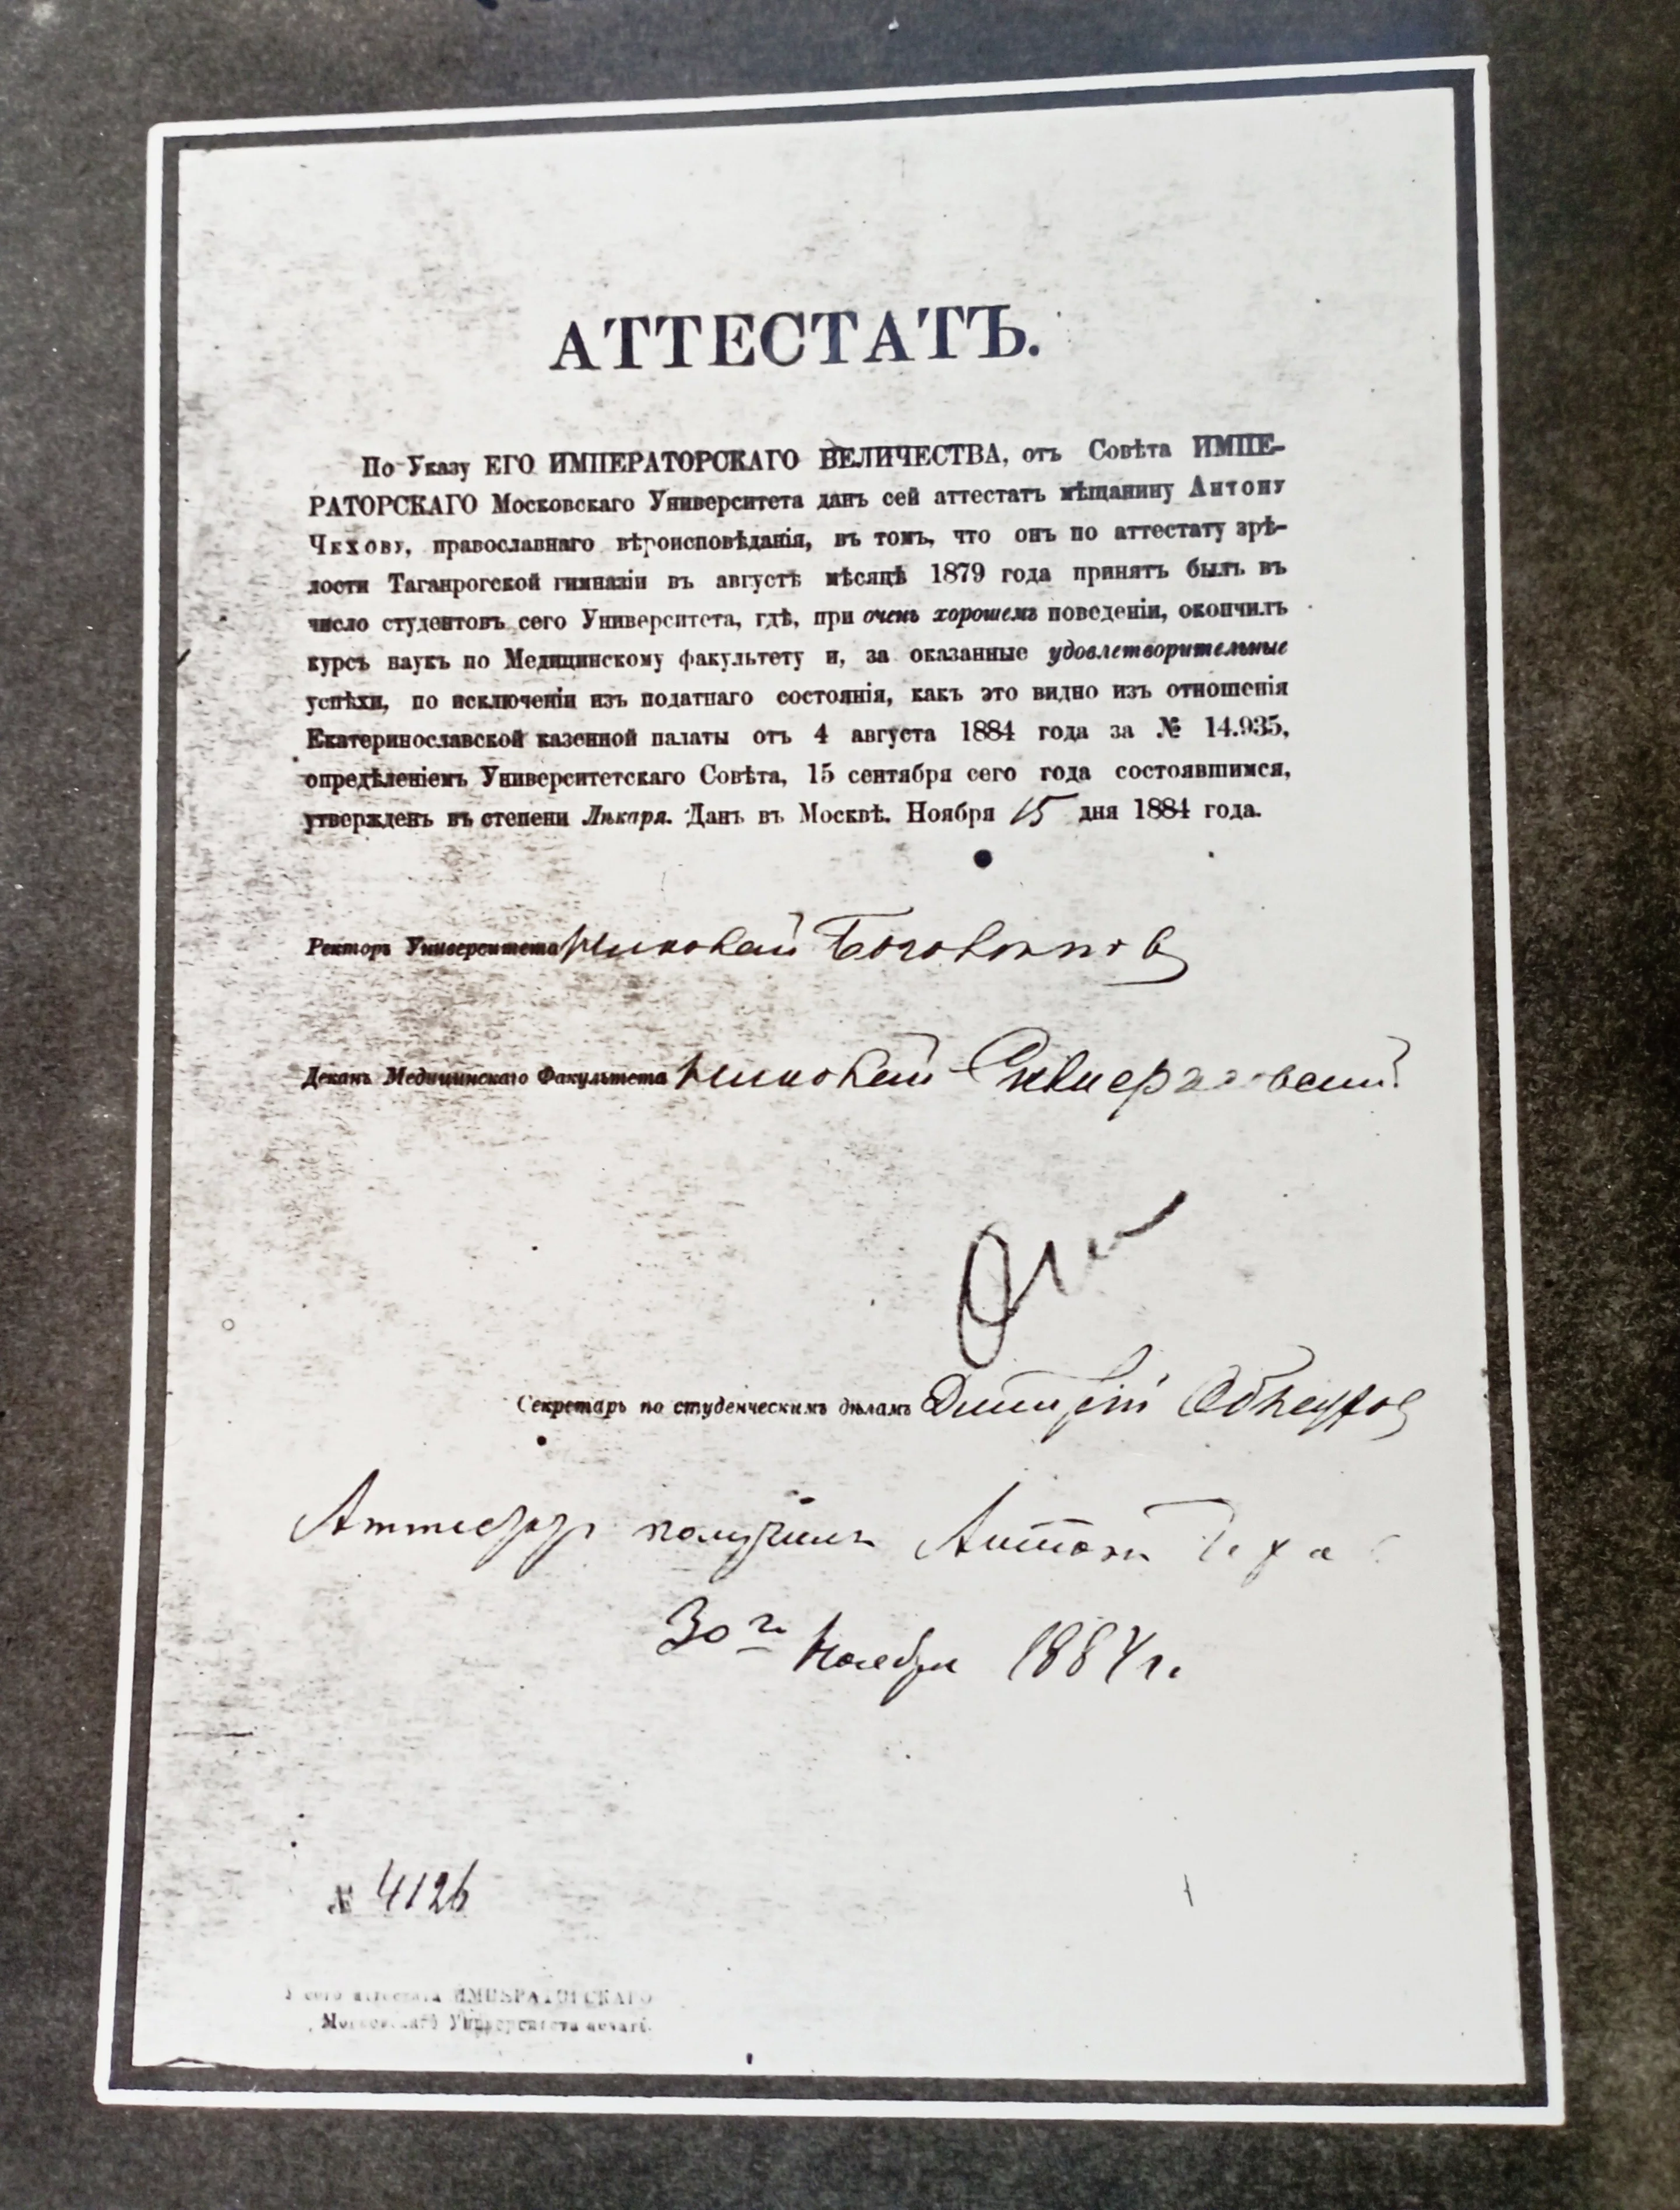 АТТЕСТАТЪ.
По Указу ЕГО ИМПЕРАТОРСКАГО ВЕЛИЧЕСТВА, отъ Совѣта ИМПЕ-
РАТОРСКАГО Московскаго Университета данъ сей аттестатъ мѣщанину Антону
Чехову, православнаго вѣроисповѣданія, въ томъ, что онъ по аттестату зрѣ-
лости Таганрогской гимназіи въ августѣ мѣсяцѣ 1879 года принятъ былъ въ
число студентовъ сего Университета, гдѣ, при очень хорошемъ поведеніи, окончилъ
курсъ наукъ по Медицинскому факультету и, за оказанные удовлетворительные
успѣхи, по исключеніи изъ податнаго состоянія, какъ это видно изъ отношенія
Екатеринославской казенной палаты отъ 4 августа 1884 года за № 14.935,
опредѣленіемъ Университетскаго Совѣта, 15 сентября сего года состоявшимся,
утвержденъ въ степени Лѣкаря. Данъ въ Москвѣ. Ноября 15 дня 1884 года.
Ректоръ Университета Николай Боголѣповъ
Деканъ Медицинскаго Факультета Николай Склифосовскій
Секретарь по студенческимъ дѣламъ Дмитрій
Аттестатъ получилъ Антонъ Чехо
30го Ноября 1884 г.
№ 4126
У сего аттестата ИМПЕРАТОРСКАГО
Московскаго Университета печать.